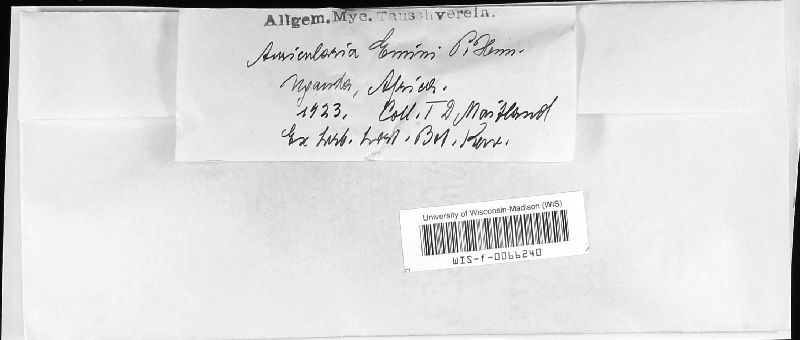 Allgem. Myc. Tauschverein.
Auricularia Emini P. Henn.
Uganda, Africa.
1923. Coll. T D Maitland
Ex herb. Hort. Bot. Kew.
University of Wisconsin-Madison (WIS)
WIS-f-0066240